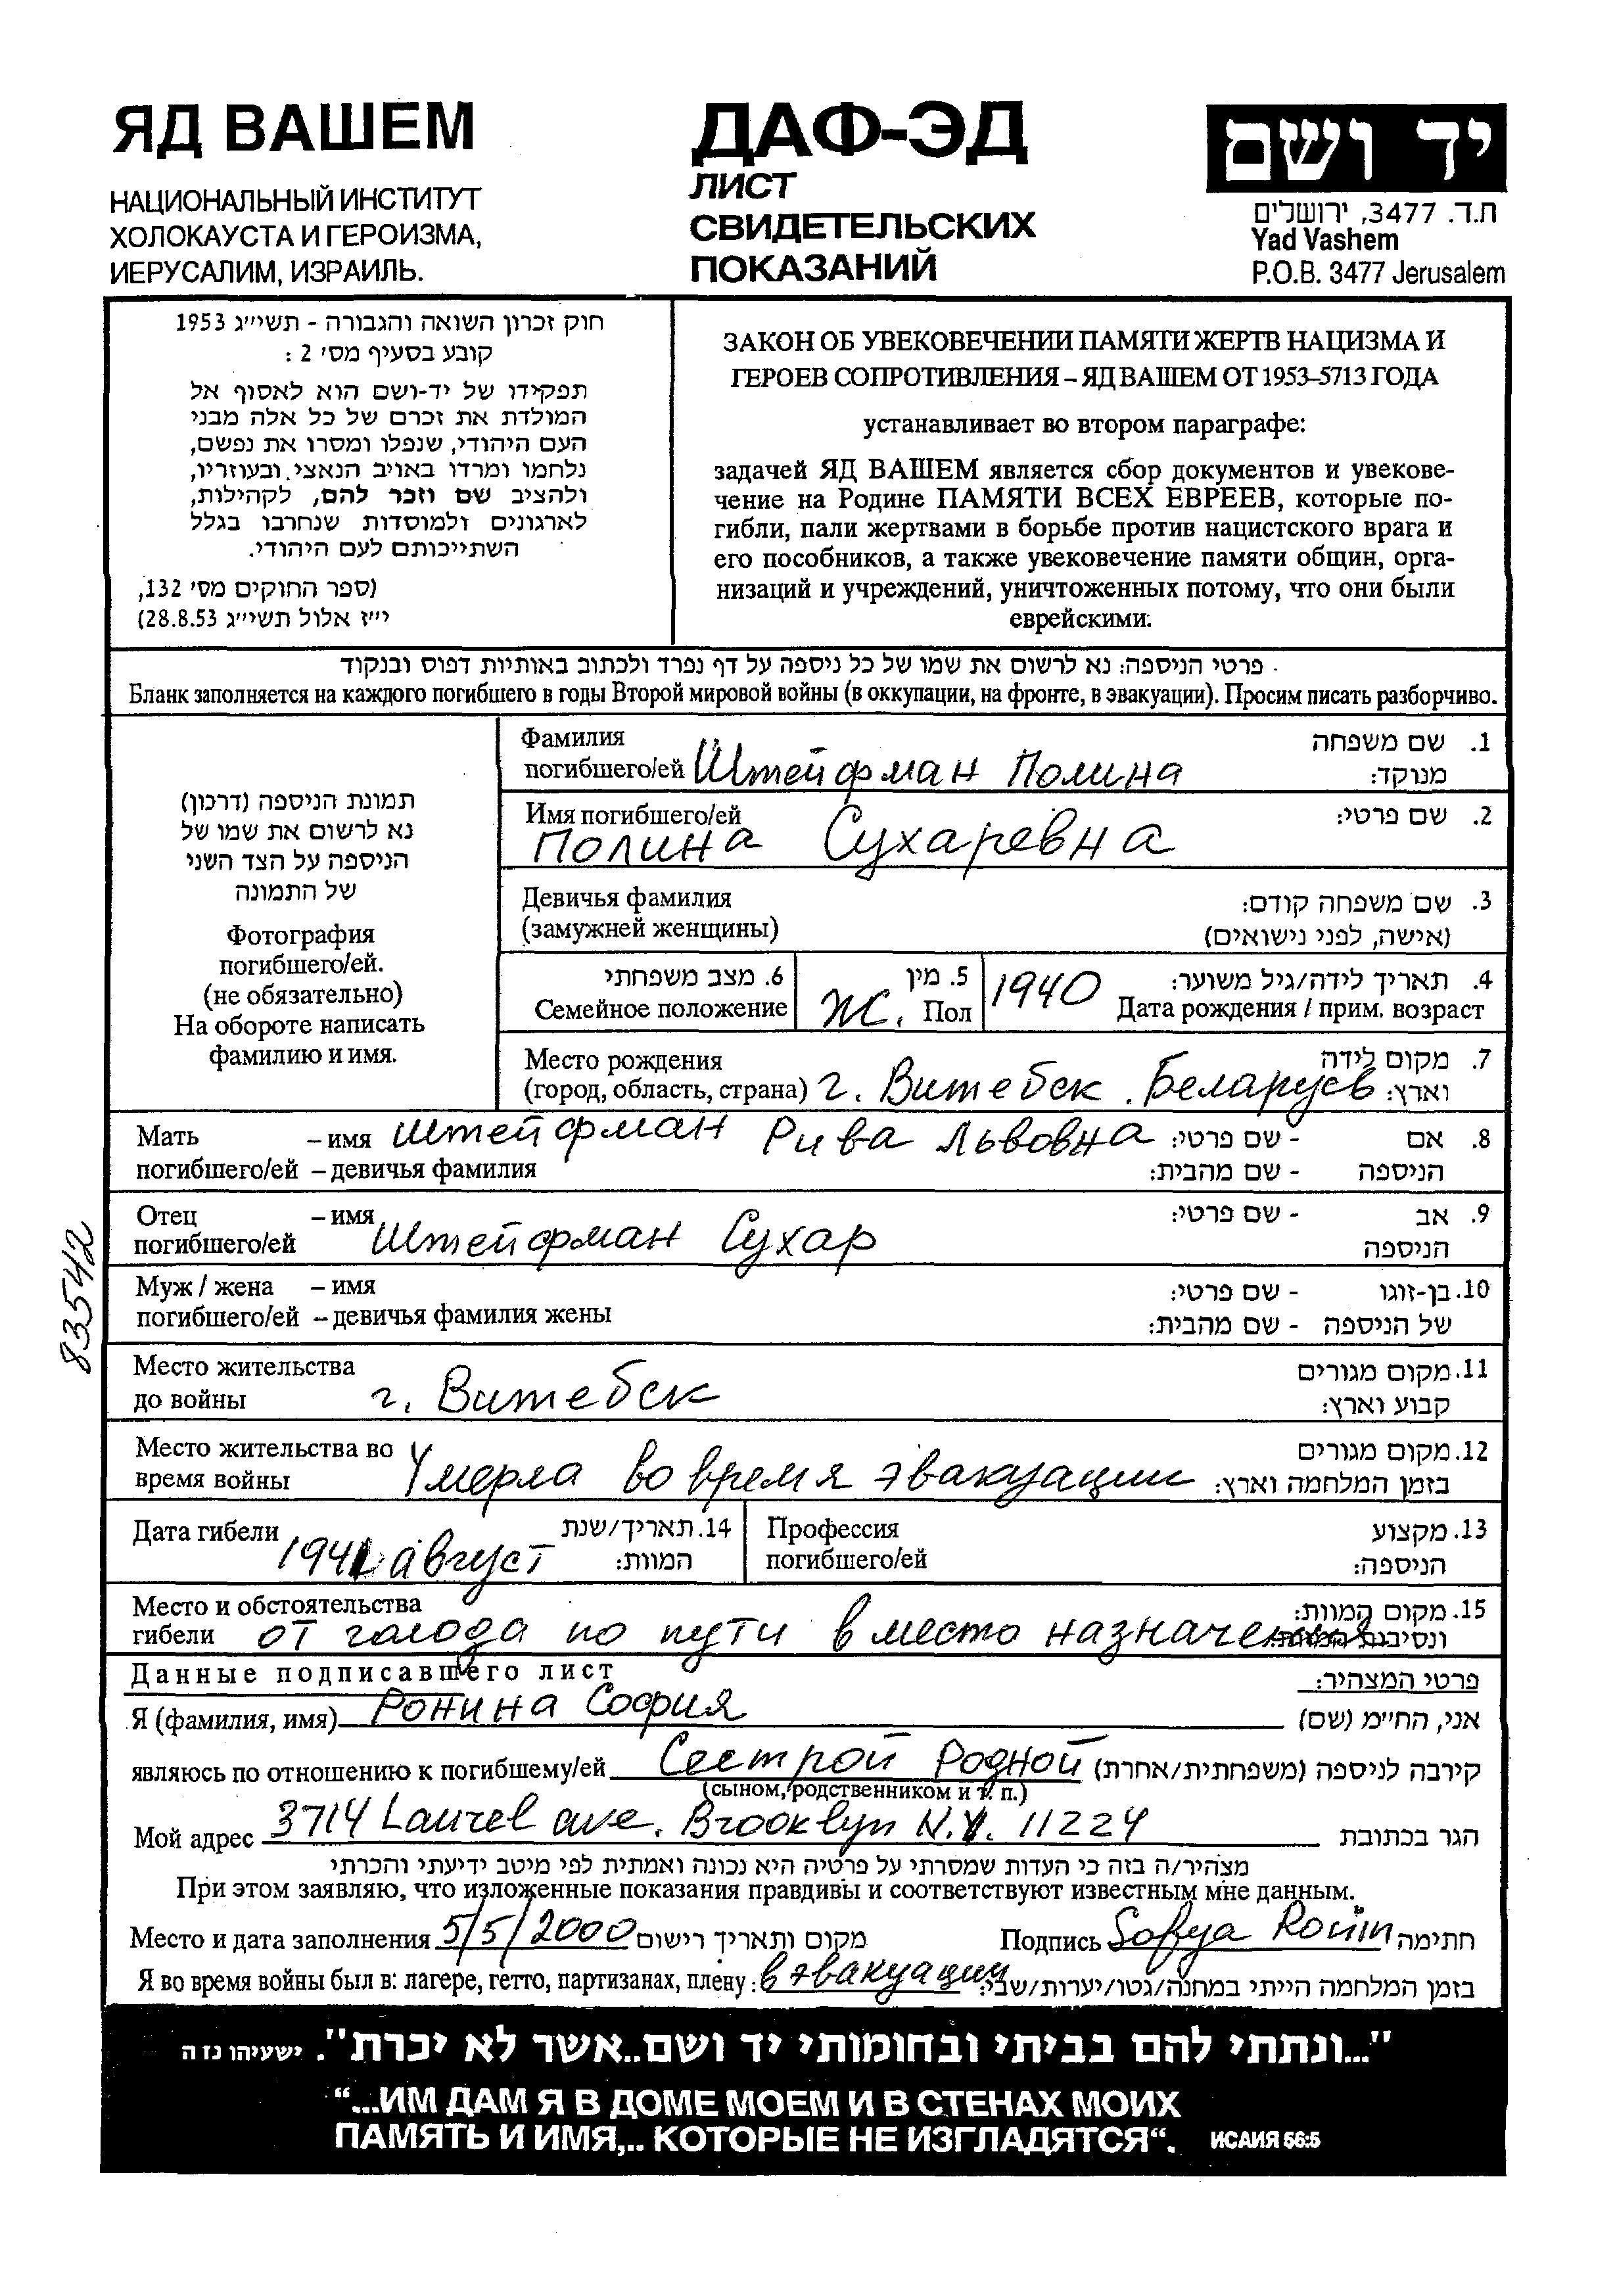 ЯД ВАШЕМ
НАЦИОНАЛЬНЫЙ ИНСТИТУТ
ХОЛОКАУСТА И ГЕРОИЗМА,
ИЕРУСАЛИМ, ИЗРАИЛЬ.
ДАФ-ЭД
ЛИСТ
СВИДЕТЕЛЬСКИХ
ПОКАЗАНИЙ
יד ושם
ת.ד. 3477, ירושלים
Yad Vashem
P.O.B. 3477 Jerusalem
חוק זכרון השואה והגבורה - תשי״ג 1953
קובע בסעיף מס׳ 2 :
תפקידו של יד-ושם הוא לאסוף אל
המולדת את זכרם של כל אלה מבני
העם היהודי, שנפלו ומסרו את נפשם,
נלחמו ומרדו באויב הנאצי ובעוזריו,
ולהציב שם וזכר להם, לקהילות,
לארגונים ולמוסדות שנחרבו בגלל
השתייכותם לעם היהודי.
(ספר החוקים מס׳ 132,
י״ז אלול תשי״ג 28.8.53)
ЗАКОН ОБ УВЕКОВЕЧЕНИИ ПАМЯТИ ЖЕРТВ НАЦИЗМА И
ГЕРОЕВ СОПРОТИВЛЕНИЯ – ЯД ВАШЕМ ОТ 1953–5713 ГОДА
устанавливает во втором параграфе:
задачей ЯД ВАШЕМ является сбор документов и увекове-
чение на Родине ПАМЯТИ ВСЕХ ЕВРЕЕВ, которые по-
гибли, пали жертвами в борьбе против нацистского врага и
его пособников, а также увековечение памяти общин, орга-
низаций и учреждений, уничтоженных потому, что они были
еврейскими.
פרטי הניספה: נא לרשום את שמו של כל ניספה על דף נפרד ולכתוב באותיות דפוס ובנקוד
Бланк заполняется на каждого погибшего в годы Второй мировой войны (в оккупации, на фронте, в эвакуации). Просим писать разборчиво.
תמונת הניספה (דרכון)
נא לרשום את שמו של
הניספה על הצד השני
של התמונה
Фотография
погибшего/ей.
(не обязательно)
На обороте написать
фамилию и имя.
Фамилия 1. שם משפחה
погибшего/ей Штейфман Полина מנוקד:
Имя погибшего/ей 2. שם פרטי:
Полина Сухаревна
Девичья фамилия 3. שם משפחה קודם:
(замужней женщины) (אישה, לפני נישואים)
6. מצב משפחתי 5. מין 1940 4. תאריך לידה/גיל משוער:
Семейное положение Ж. Пол Дата рождения / прим. возраст
Место рождения 7. מקום לידה
(город, область, страна) г. Витебск. Беларусь וארץ:
Мать – имя Штейфман Рива Львовна - שם פרטי: 8. אם
погибшего/ей – девичья фамилия - שם מהבית: הניספה
Отец – имя - שם פרטי: 9. אב
погибшего/ей Штейфман Сухар הניספה
Муж / жена – имя - שם פרטי: 10. בן-זוגו
погибшего/ей – девичья фамилия жены - שם מהבית: של הניספה
Место жительства 11. מקום מגורים
до войны г. Витебск קבוע וארץ:
Место жительства во 12. מקום מגורים
время войны Умерла во время эвакуации בזמן המלחמה וארץ:
Дата гибели 1941 август 14. תאריך/שנת Профессия 13. מקצוע
המוות: погибшего/ей הניספה:
Место и обстоятельства 15. מקום המוות:
гибели от голода по пути в место назначения. ונסיבות המוות:
Данные подписавшего лист פרטי המצהיר:
Я (фамилия, имя) Ронина София אני, החי״מ (שם)
являюсь по отношению к погибшему/ей Сестрой Родной קירבה לניספה (משפחתית/אחרת)
(сыном, родственником и т. п.)
Мой адрес 3714 Laurel ave. Brooklyn N.Y. 11224 הגר בכתובת
מצהיר/ה בזה כי העדות שמסרתי על פרטיה היא נכונה ואמתית לפי מיטב ידיעתי והכרתי
При этом заявляю, что изложенные показания правдивы и соответствуют известным мне данным.
Место и дата заполнения 5/5/2000 מקום ותאריך רישום Подпись Sofya Ronin חתימה
Я во время войны был в: лагере, гетто, партизанах, плену: в эвакуации בזמן המלחמה הייתי במחנה/גטו/יערות/שבי:
83542
"...ונתתי להם בביתי ובחומותי יד ושם..אשר לא יכרת". ישעיהו נז ה
“...ИМ ДАМ Я В ДОМЕ МОЕМ И В СТЕНАХ МОИХ
ПАМЯТЬ И ИМЯ,.. КОТОРЫЕ НЕ ИЗГЛАДЯТСЯ“. ИСАИЯ 56:5